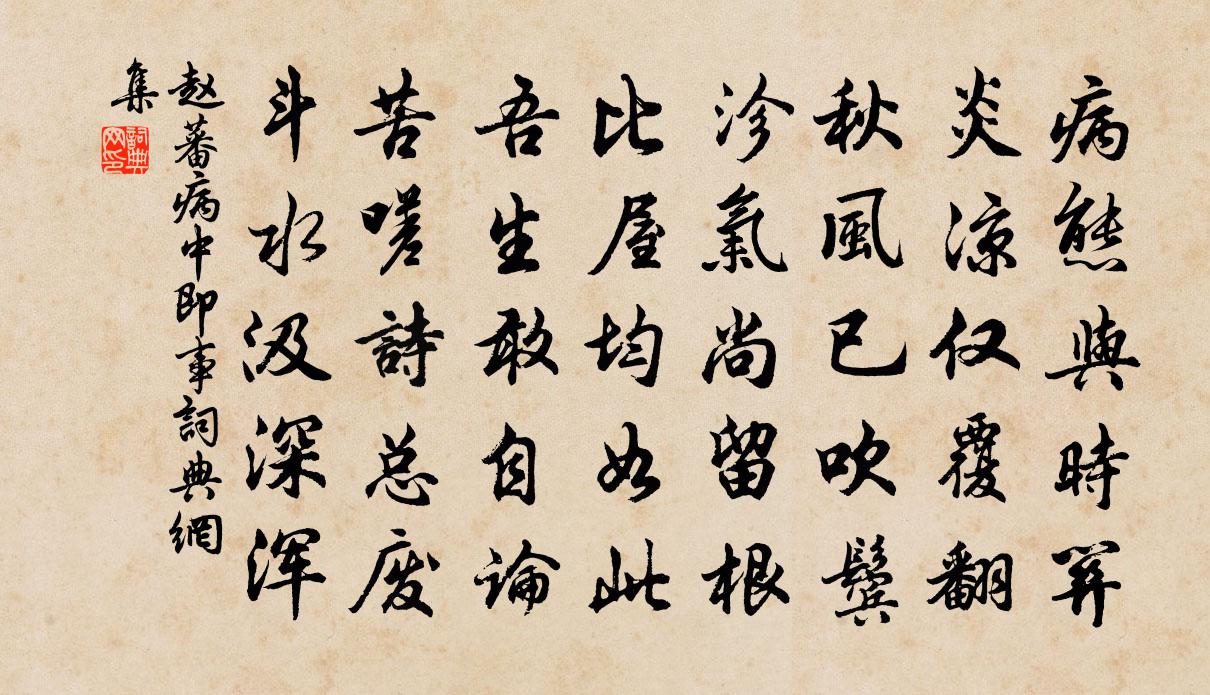 病態與時
炎涼仅覆翻
秋風已吹鬢
沴氣尚留根
比屋均如此
吾生敢自論
苦嗟詩总废
斗水汲深浑
赵蕃病中即事詞典網
集
詞典
网印